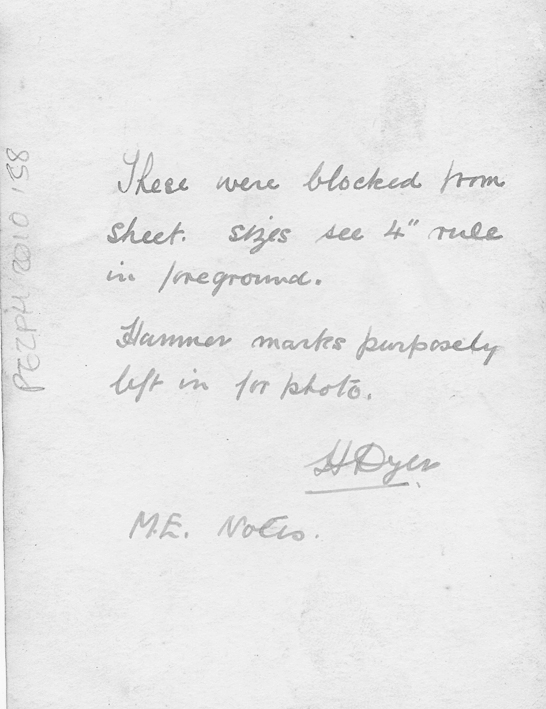 These were blocked from
sheet. sizes see 4" rule
in foreground.
Hammer marks purposely
left in for photo.
H Dyer
M.E. Notes.
PEZPH 2010 158